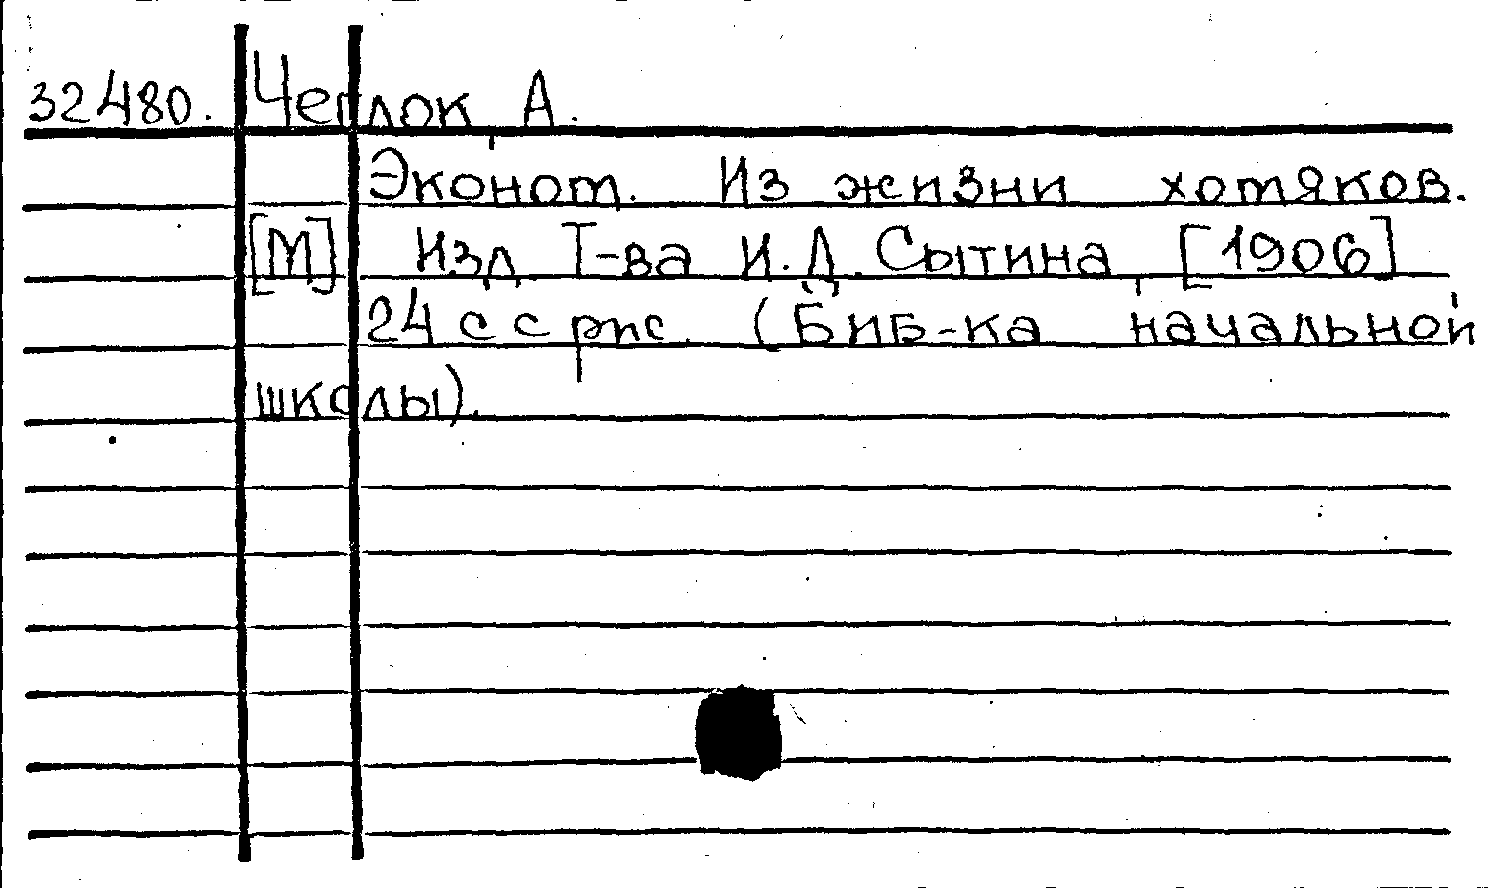 32480. Чеглок, А.
Эконот. Из жизни хотяков.
[М] Изд. Т-ва И.Д. Сытина, [1906]
24 с с рис. (Биб-ка начальной
школы).